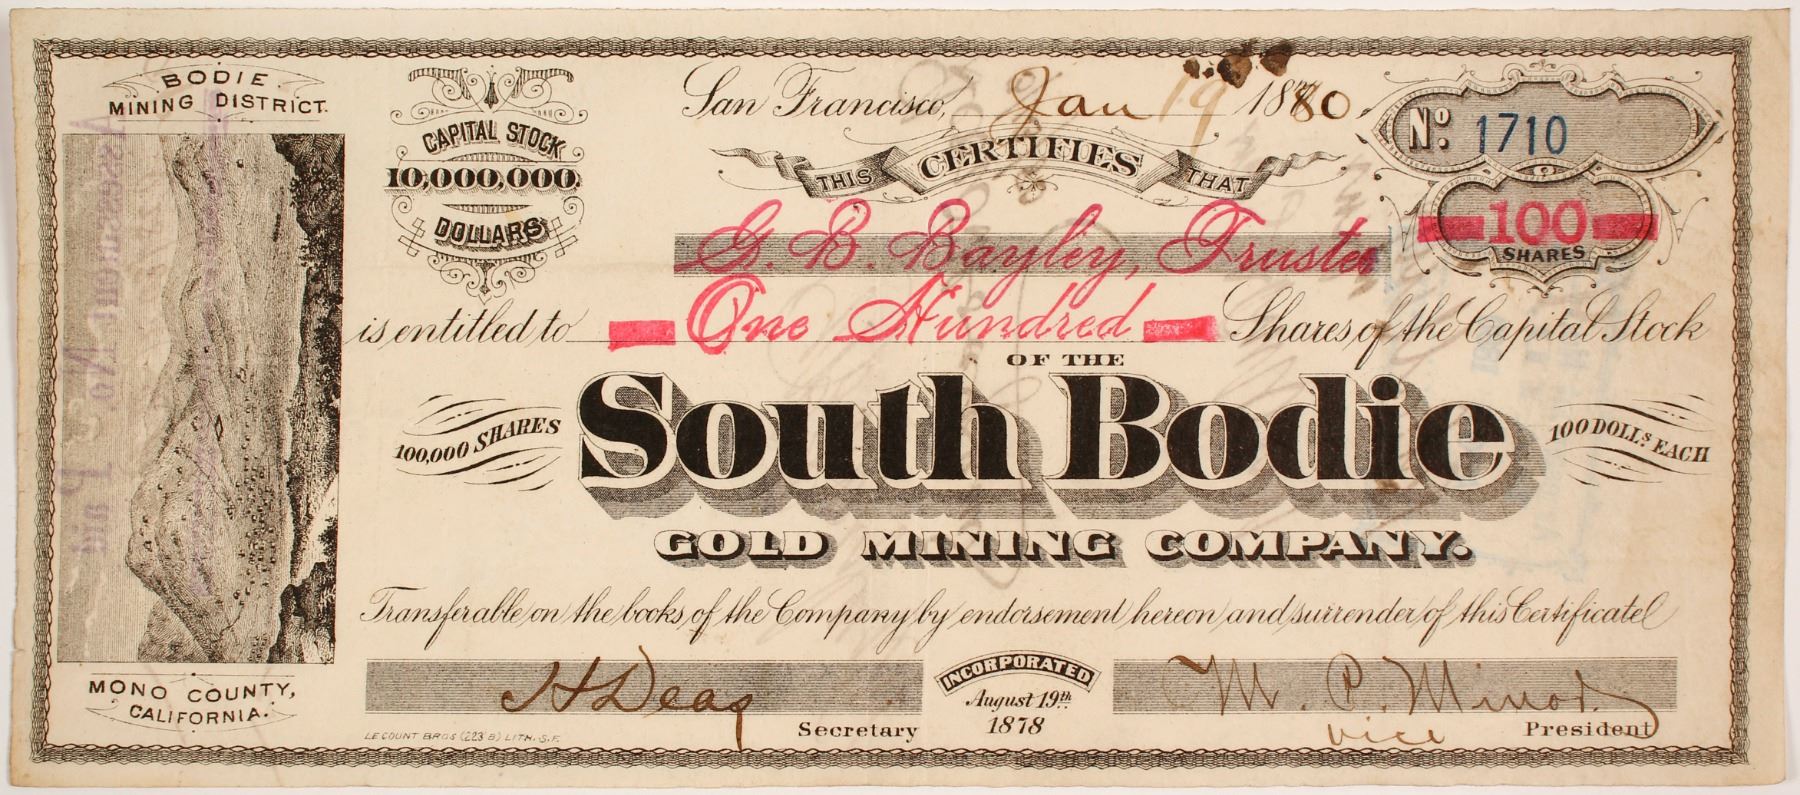 BODIE
MINING DISTRICT.
CAPITAL STOCK
10,000,000.
DOLLARS
San Francisco, Jan 19 1880.
No. 1710
THIS CERTIFIES THAT
100
SHARES
G. B. Bayley, Trustee
is entitled to One Hundred Shares of the Capital Stock
OF THE
100,000 SHARES
South Bodie
100 DOLLS EACH
GOLD MINING COMPANY.
Transferable on the books of the Company by endorsement hereon and surrender of this Certificate
MONO COUNTY,
CALIFORNIA.
INCORPORATED
August 19th
1878
Secretary
M. P. Minor
vice President
LE COUNT BROS (223 B) LITH. S.F.